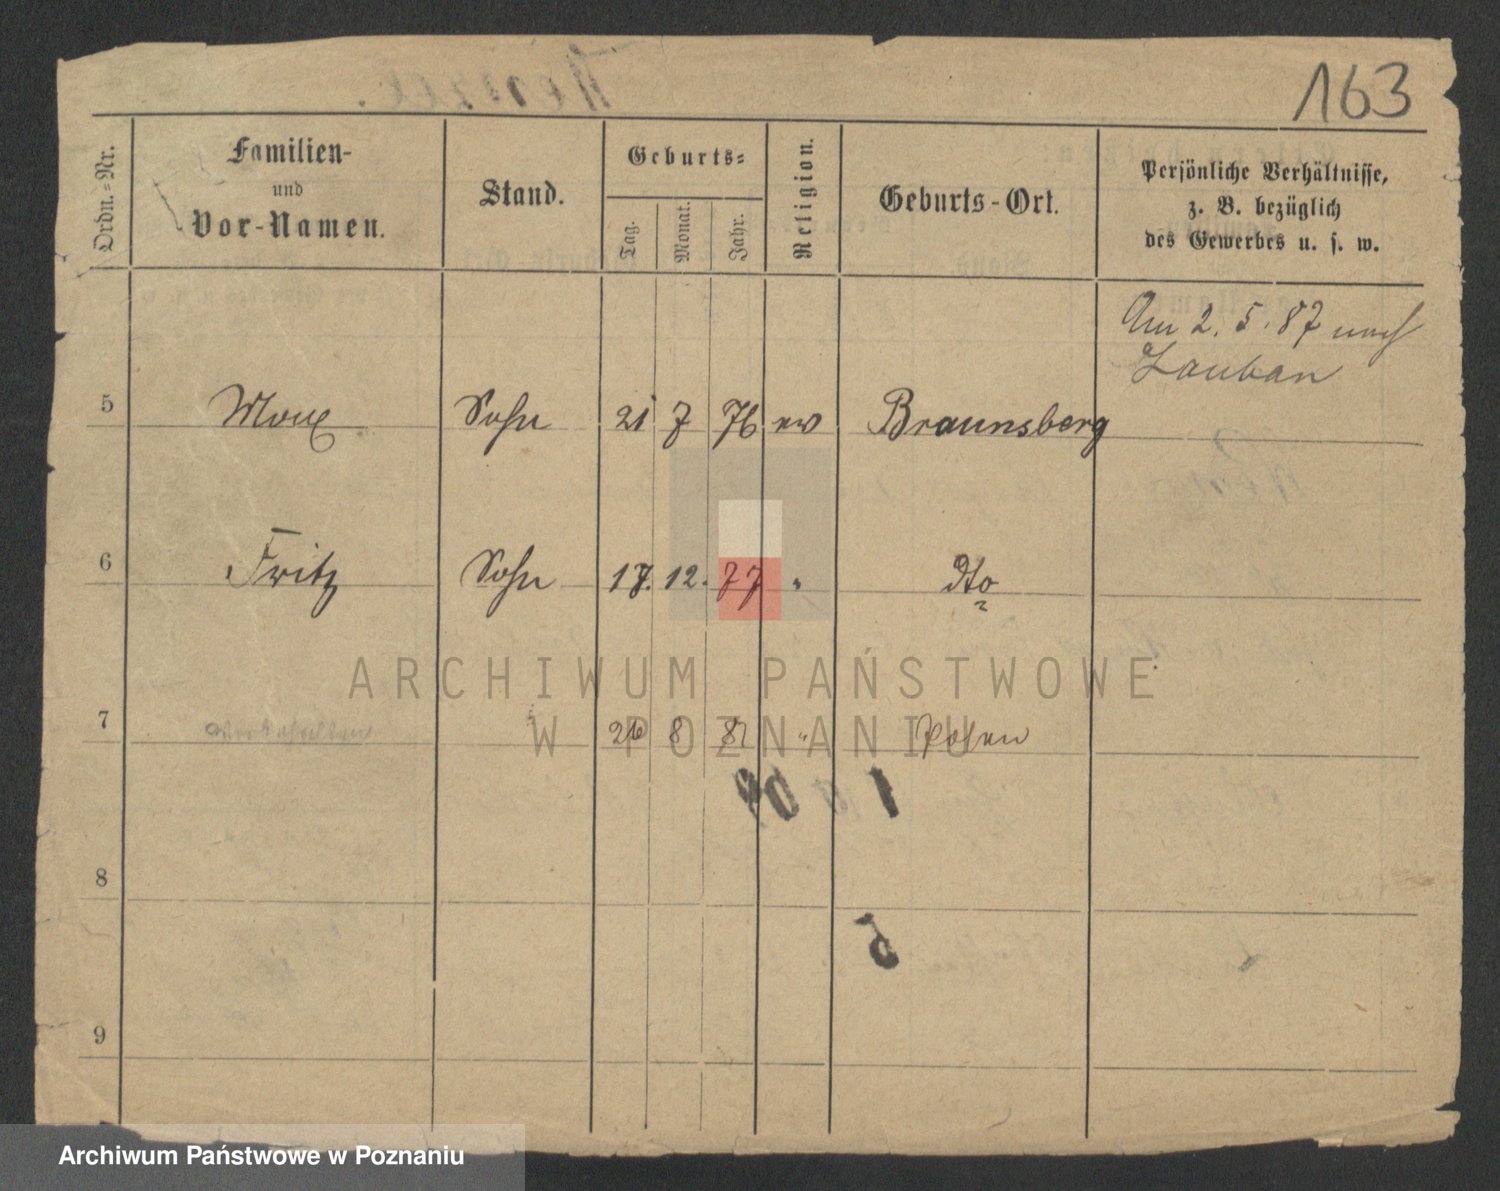 163
Ordn.-Nr.
Familien-
und
Vor-Namen.
Stand.
Geburts-
Tag.
Monat.
Jahr.
Religion.
Geburts-Ort.
Persönliche Verhältnisse,
z. B. bezüglich
des Gewerbes u. s. w.
Am 2. 5. 87 nach
Lauban
5 Max Sohn 21 7 76 ev Braunsberg
6 Fritz Sohn 17. 12. 77 " dto
7 26 8 82 " Posen
8
9
ARCHIWUM PAŃSTWOWE
W POZNANIU
Archiwum Państwowe w Poznaniu